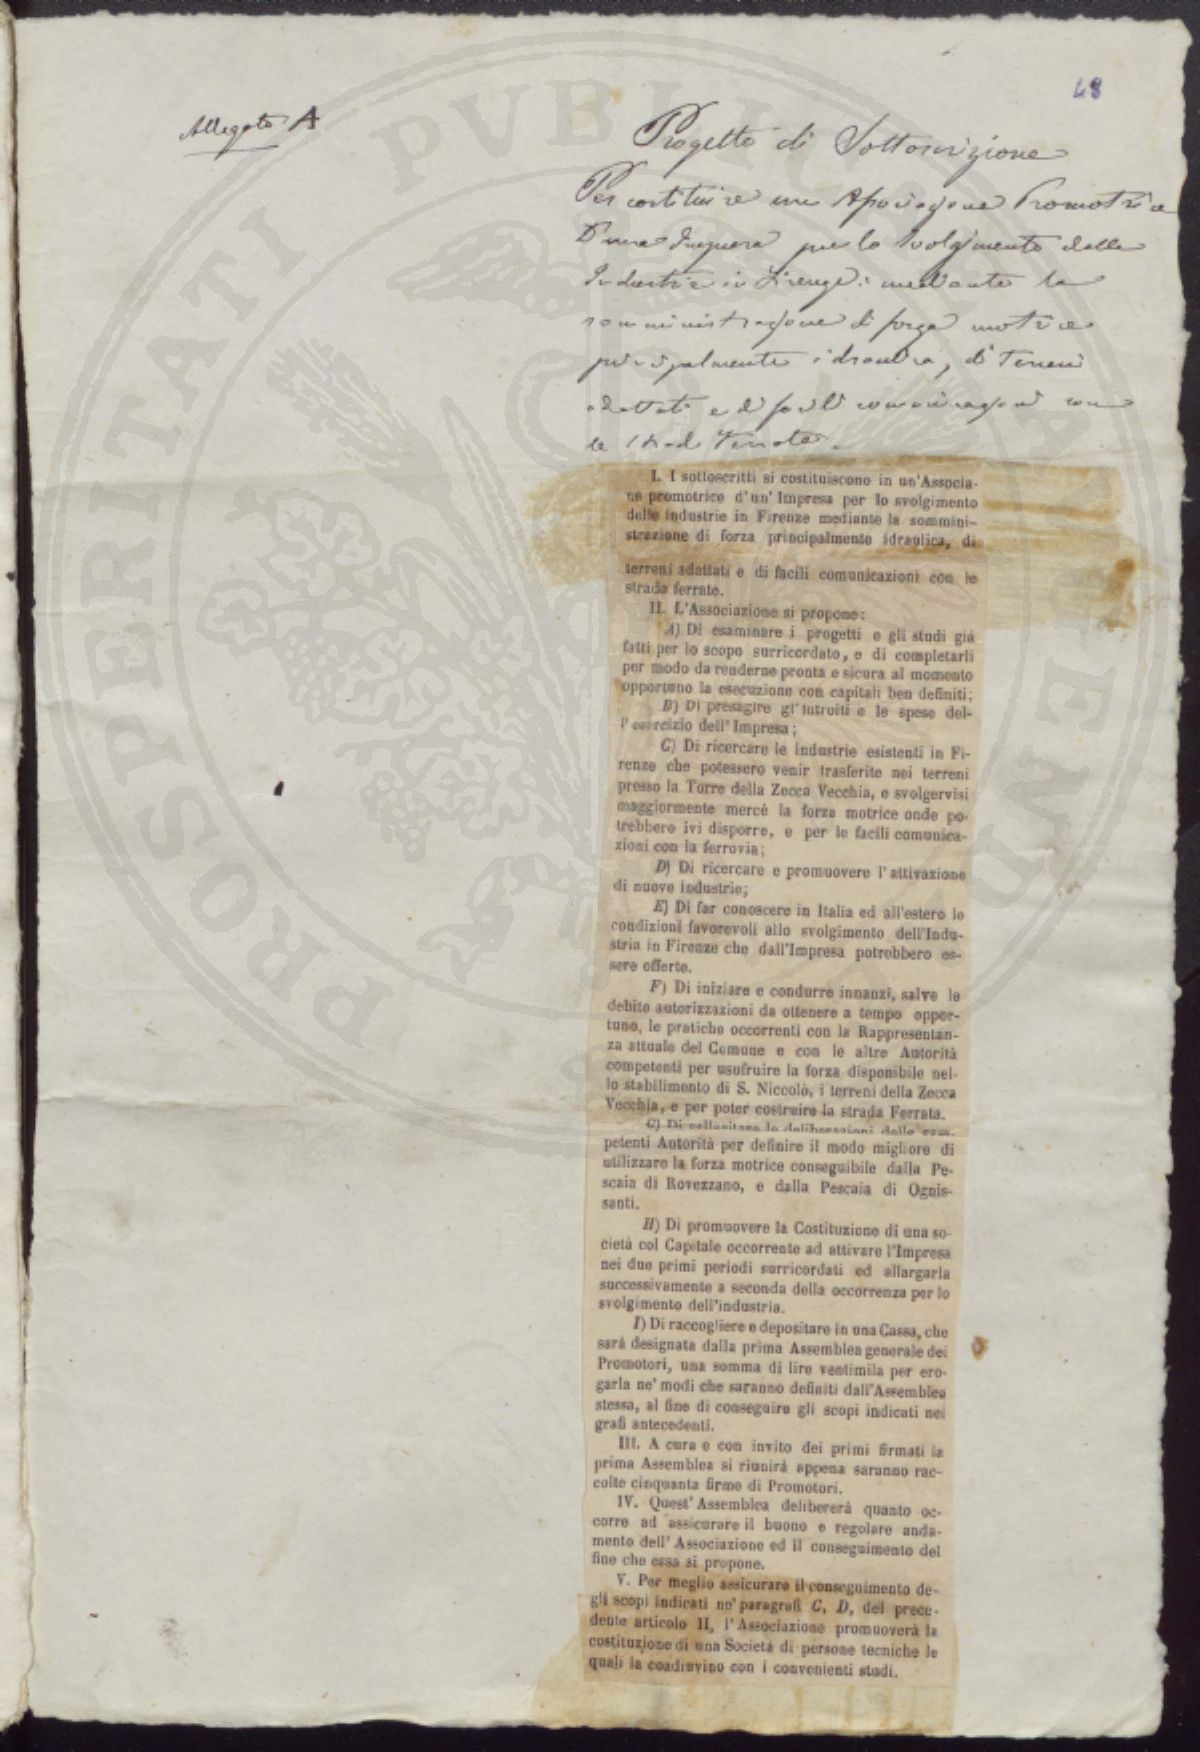 48
Allegato A
Progetto di Sottoscrizione
Per costituire una Associazione Promotrice
D'una Impresa per lo svolgimento delle
Industrie in Firenze: mediante la
somministrazione di forza motrice
principalmente idraulica, di terreni
adattati e di facili comunicazioni con
le Strade ferrate.
I. I sottoscritti si costituiscono in un'Associa-
ne promotrice d'un' Impresa per lo svolgimento
delle industrie in Firenze mediante la sommini-
strazione di forza principalmente idraulica, di
terreni adattati e di facili comunicazioni con le
strade ferrate.
II. L'Associazione si propone:
A) Di esaminare i progetti e gli studi già
fatti per lo scopo surricordato, e di completarli
per modo da renderne pronta e sicura al momento
opportuno la esecuzione con capitali ben definiti;
B) Di presagire gl'introiti e le spese del-
l'esercizio dell'Impresa;
C) Di ricercare le industrie esistenti in Fi-
renze che potessero venir trasferite nei terreni
presso la Torre della Zecca Vecchia, e svolgervisi
maggiormente mercè la forza motrice onde po-
trebbero ivi disporre, e per le facili comunica-
zioni con la ferrovia;
D) Di ricercare e promuovere l'attivazione
di nuove industrie;
E) Di far conoscere in Italia ed all'estero le
condizioni favorevoli allo svolgimento dell'Indu-
stria in Firenze che dall'Impresa potrebbero es-
sere offerte.
F) Di iniziare e condurre innanzi, salve le
debite autorizzazioni da ottenere a tempo oppor-
tuno, le pratiche occorrenti con la Rappresentan-
za attuale del Comune e con le altre Autorità
competenti per usufruire la forza disponibile nel-
lo stabilimento di S. Niccolò, i terreni della Zecca
Vecchia, e per poter costruire la strada Ferrata.
G) Di sollecitare le deliberazioni delle com-
petenti Autorità per definire il modo migliore di
utilizzare la forza motrice conseguibile dalla Pe-
scaia di Rovezzano, e dalla Pescaia di Ognis-
santi.
H) Di promuovere la Costituzione di una so-
cietà col Capitale occorrente ad attivare l'Impresa
nei due primi periodi surricordati ed allargarla
successivamente a seconda della occorrenza per lo
svolgimento dell'industria.
I) Di raccogliere e depositare in una Cassa, che
sarà designata dalla prima Assemblea generale dei
Promotori, una somma di lire ventimila per ero-
garla ne' modi che saranno definiti dall'Assemblea
stessa, al fine di conseguire gli scopi indicati nei
grafi antecedenti.
III. A cura e con invito dei primi firmati la
prima Assemblea si riunirà appena saranno rac-
colte cinquanta firme di Promotori.
IV. Quest'Assemblea delibererà quanto oc-
corre ad assicurare il buono e regolare anda-
mento dell'Associazione ed il conseguimento del
fine che essa si propone.
V. Per meglio assicurare il conseguimento de-
gli scopi indicati ne' paragrafi C, D, del prece-
dente articolo II, l'Associazione promuoverà la
costituzione di una Società di persone tecniche le
quali la coadiuvino con i convenienti studi.
PROSPERITATI PVBLICAE AVGENDAE